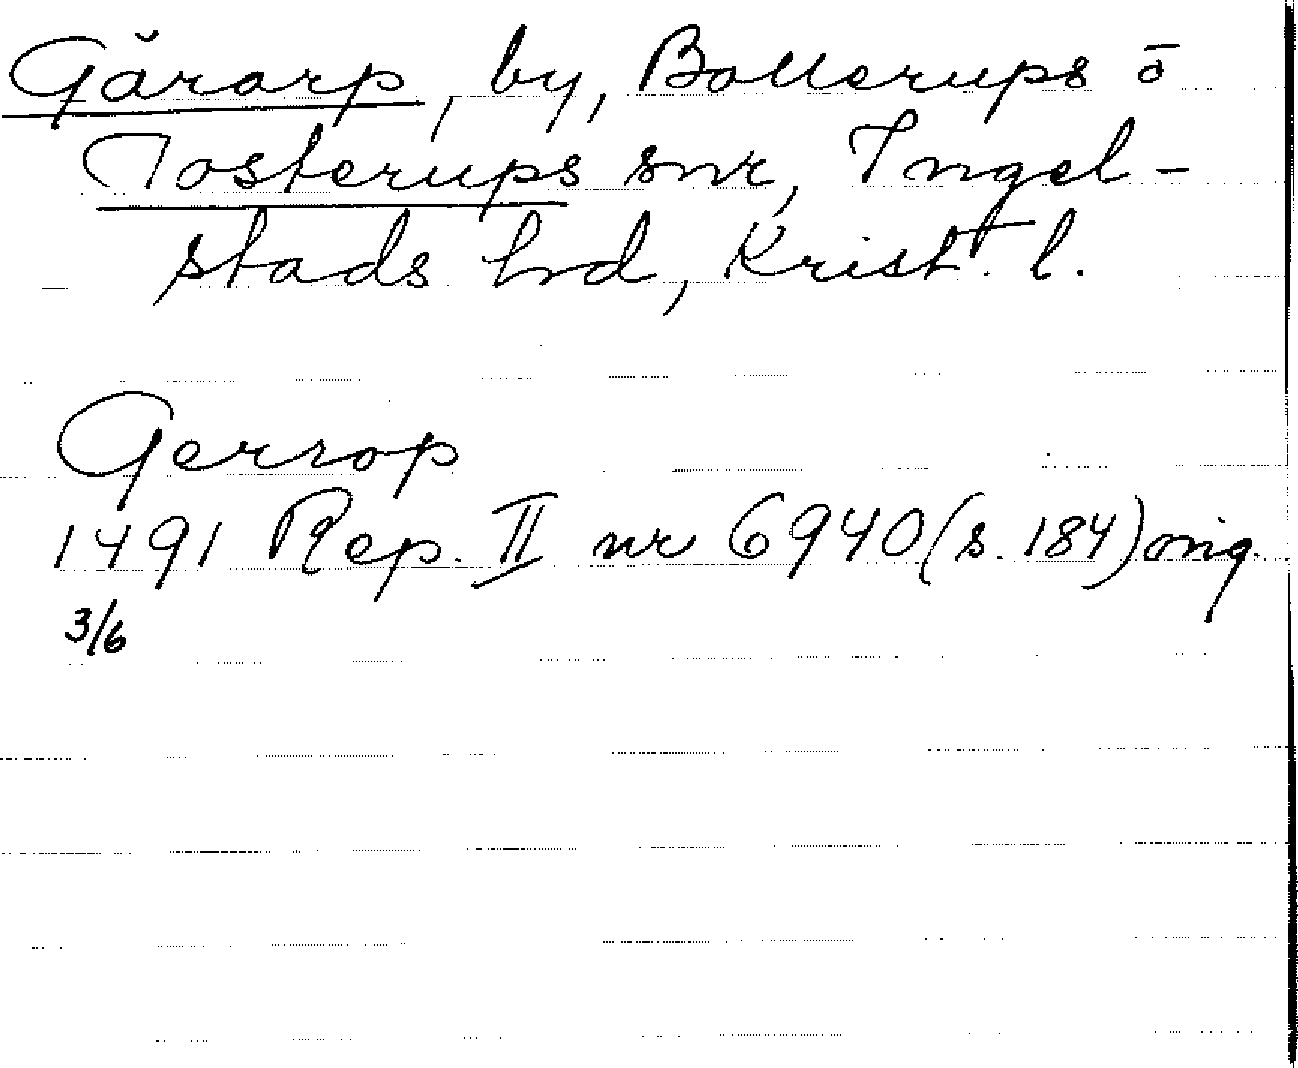 Gårarp, by, Bollerups o
Tosterups snr, Ingel-
stads hrd, Krist. l.
Gerrop
1491 Rep. II nr 6940 (s. 184) orig.
3/6